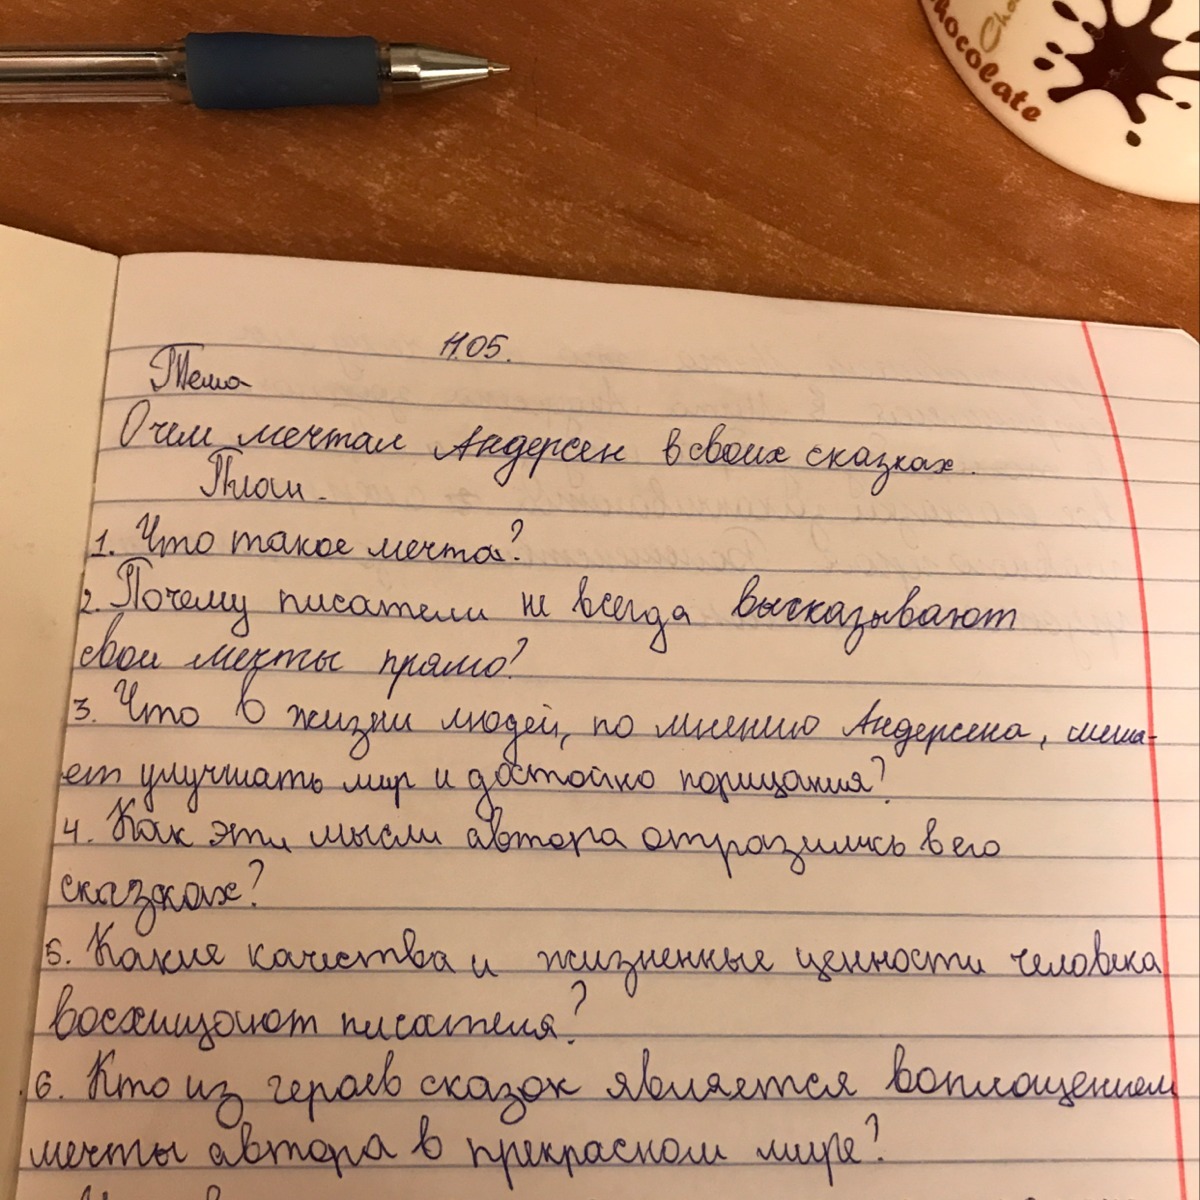 Chocolate
11.05.
Тема
О чем мечтал Андерсен в своих сказках.
План.
1. Что такое мечта?
2. Почему писатели не всегда высказывают
свои мечты прямо?
3. Что в жизни людей, по мнению Андерсена, меша-
ет улучшать мир и достойно порицания?
4. Как эти мысли автора отразились в его
сказках?
5. Какие качества и жизненные ценности человека
восхищают писателя?
6. Кто из героев сказок является воплощением
мечты автора в прекрасном мире?